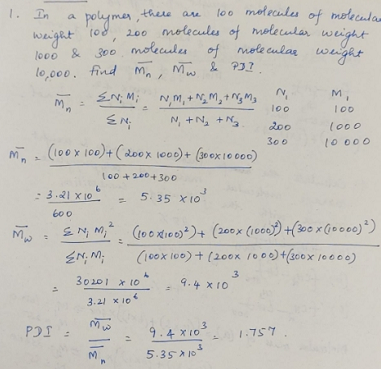 1. In a polymer, there are 100 molecules of molecular
weight 100, 200 molecules of molecular weight
1000 & 300 molecules of molecular weight
10,000. find M̅n, M̅w & PDI.
M̅n = ΣNiMi / ΣNi = N1M1+N2M2+N3M3 / N1 + N2 + N3
Ni Mi
100 100
200 1000
300 10 000
M̅n = (100 x 100)+(200x 1000)+ (300x10000) / 100+200+300
= 3.21 x10^6 / 600 = 5.35 x10^3
M̅w = ΣNiMi² / ΣNiMi = (100x(100)²)+ (200x (1000)²)+(300x(10000)²) / (100x100)+ (200x 1000)+(300x 10000)
= 30201 x10^6 / 3.21 x 10^6 = 9.4 x10^3
PDI = M̅w / M̅n = 9.4 x10^3 / 5.35 x10^3 = 1.757.